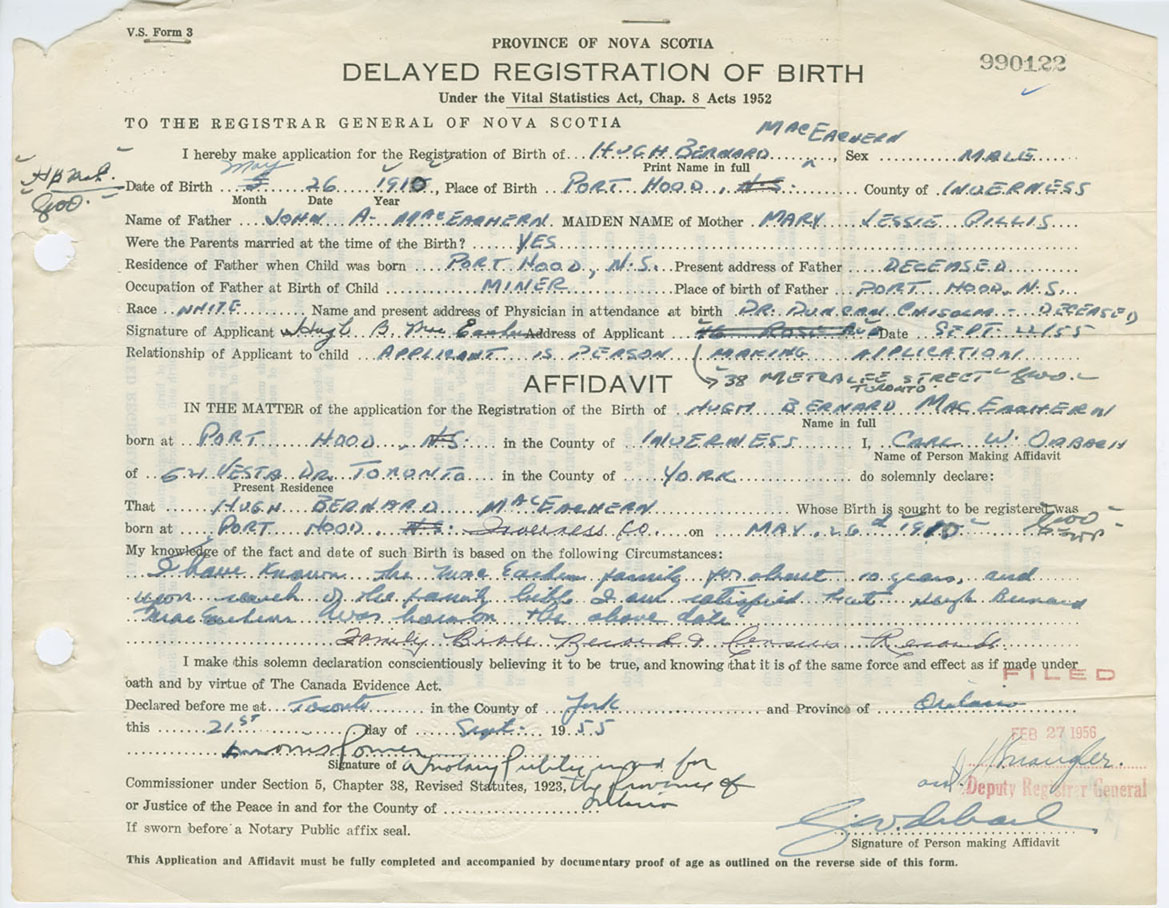 V.S. Form 3
PROVINCE OF NOVA SCOTIA
990122
DELAYED REGISTRATION OF BIRTH
Under the Vital Statistics Act, Chap. 8 Acts 1952
TO THE REGISTRAR GENERAL OF NOVA SCOTIA
MACEACHERN
I hereby make application for the Registration of Birth of HUGH BERNARD, Sex MALE
Print Name in full
May
Date of Birth 5 26 1910, Place of Birth PORT HOOD, N.S. County of INVERNESS
Month Date Year
Name of Father JOHN A. MACEACHERN MAIDEN NAME of Mother MARY JESSIE GILLIS
Were the Parents married at the time of the Birth? YES
Residence of Father when Child was born PORT HOOD, N.S. Present address of Father DECEASED
Occupation of Father at Birth of Child MINER Place of birth of Father PORT HOOD, N.S.
Race WHITE Name and present address of Physician in attendance at birth DR. DUNCAN CHISOLM - DECEASED
Signature of Applicant Hugh B. MacEachern Address of Applicant 46 ROSE AVE Date SEPT 21/55
Relationship of Applicant to child APPLICANT IS PERSON MAKING APPLICATION
38 METCALFE STREET
TORONTO
AFFIDAVIT
IN THE MATTER of the application for the Registration of the Birth of HUGH BERNARD MACEACHERN
Name in full
born at PORT HOOD, N.S. in the County of INVERNESS I, CARL W. ORBACH
Name of Person Making Affidavit
of 64 VESTA DR. TORONTO in the County of YORK do solemnly declare:
Present Residence
That HUGH BERNARD MACEACHERN Whose Birth is sought to be registered was
born at PORT HOOD N.S. Inverness Co. on MAY, 26 1910
My knowledge of the fact and date of such Birth is based on the following Circumstances:
I have known the MacEachern family for about 10 years, and
upon search of the family bible I am satisfied that Hugh Bernard
MacEachern was born on the above date
Family Bible Record & Census Records
I make this solemn declaration conscientiously believing it to be true, and knowing that it is of the same force and effect as if made under
oath and by virtue of The Canada Evidence Act.
FILED
Declared before me at Toronto in the County of York and Province of Ontario
this 21ST day of Sept. 1955
FEB 27 1956
Signature of a Notary Public in and for
Commissioner under Section 5, Chapter 38, Revised Statutes, 1923, the Province of
Deputy Registrar General
or Justice of the Peace in and for the County of Ontario
If sworn before a Notary Public affix seal.
Signature of Person making Affidavit
This Application and Affidavit must be fully completed and accompanied by documentary proof of age as outlined on the reverse side of this form.